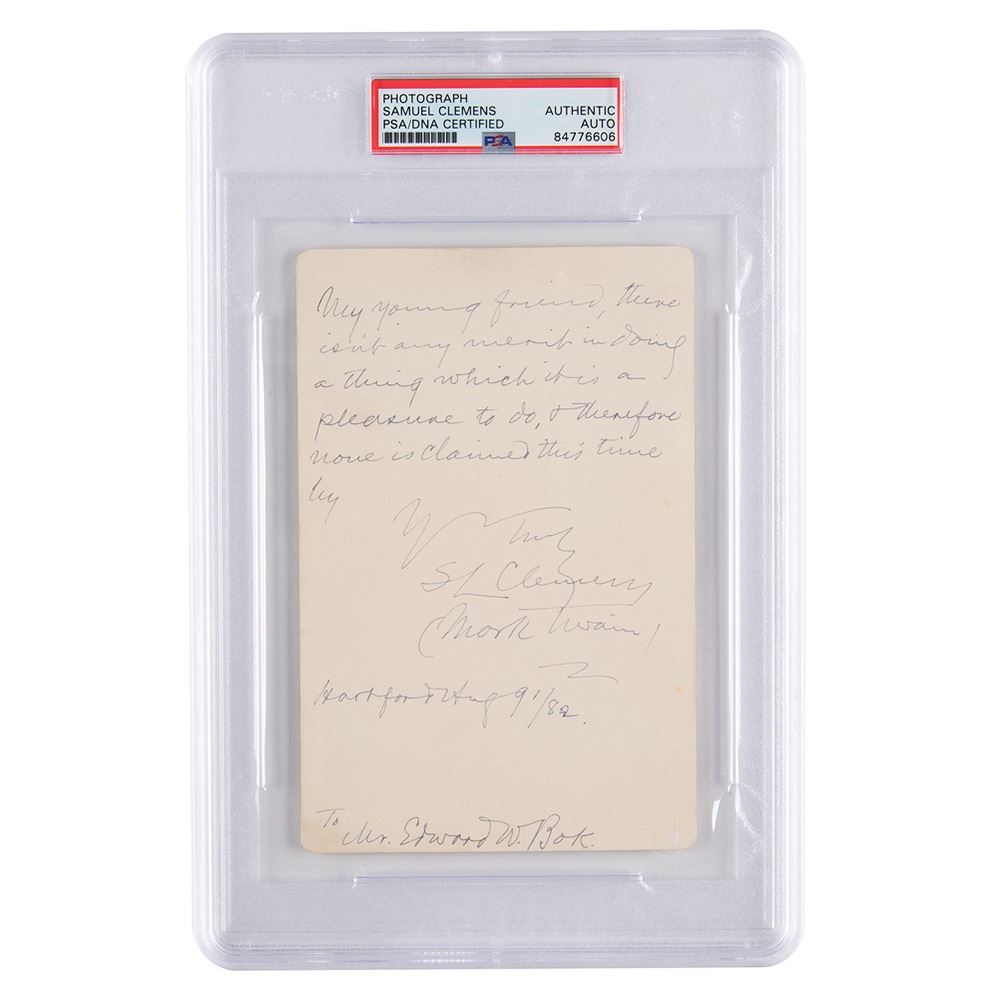 PHOTOGRAPH
SAMUEL CLEMENS
PSA/DNA CERTIFIED
AUTHENTIC
AUTO
84776606
PSA
My young friend, there
isn't any merit in doing
a thing which it is a
pleasure to do, & therefore
none is claimed this time
by
Y Truly
SL Clemens
(Mark Twain)
Hartford Aug 9/82.
To
Mr. Edward W. Bok.